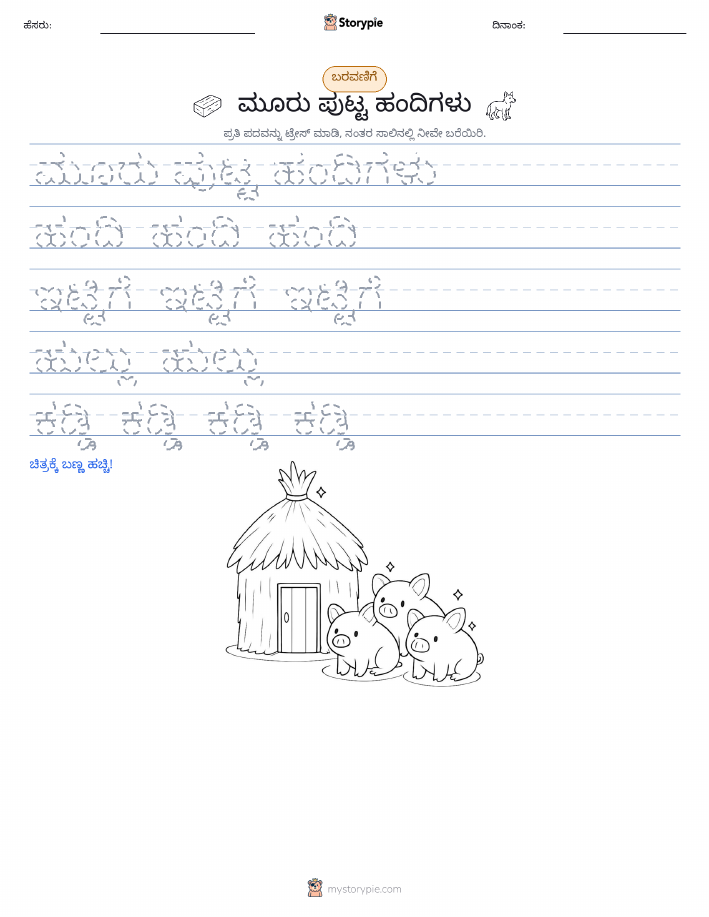 ಹೆಸರು: Storypie ದಿನಾಂಕ:
ಬರವಣಿಗೆ
ಮೂರು ಪುಟ್ಟ ಹಂದಿಗಳು
ಪ್ರತಿ ಪದವನ್ನು ಟ್ರೇಸ್ ಮಾಡಿ, ನಂತರ ಸಾಲಿನಲ್ಲಿ ನೀವೇ ಬರೆಯಿರಿ.
ಮೂರು ಪುಟ್ಟ ಹಂದಿಗಳು
ಹಂದಿ ಹಂದಿ ಹಂದಿ
ಇಟ್ಟಿಗೆ ಇಟ್ಟಿಗೆ ಇಟ್ಟಿಗೆ
ಹುಲ್ಲು ಹುಲ್ಲು
ಕಡ್ಡಿ ಕಡ್ಡಿ ಕಡ್ಡಿ ಕಡ್ಡಿ
ಚಿತ್ರಕ್ಕೆ ಬಣ್ಣ ಹಚ್ಚಿ!
mystorypie.com